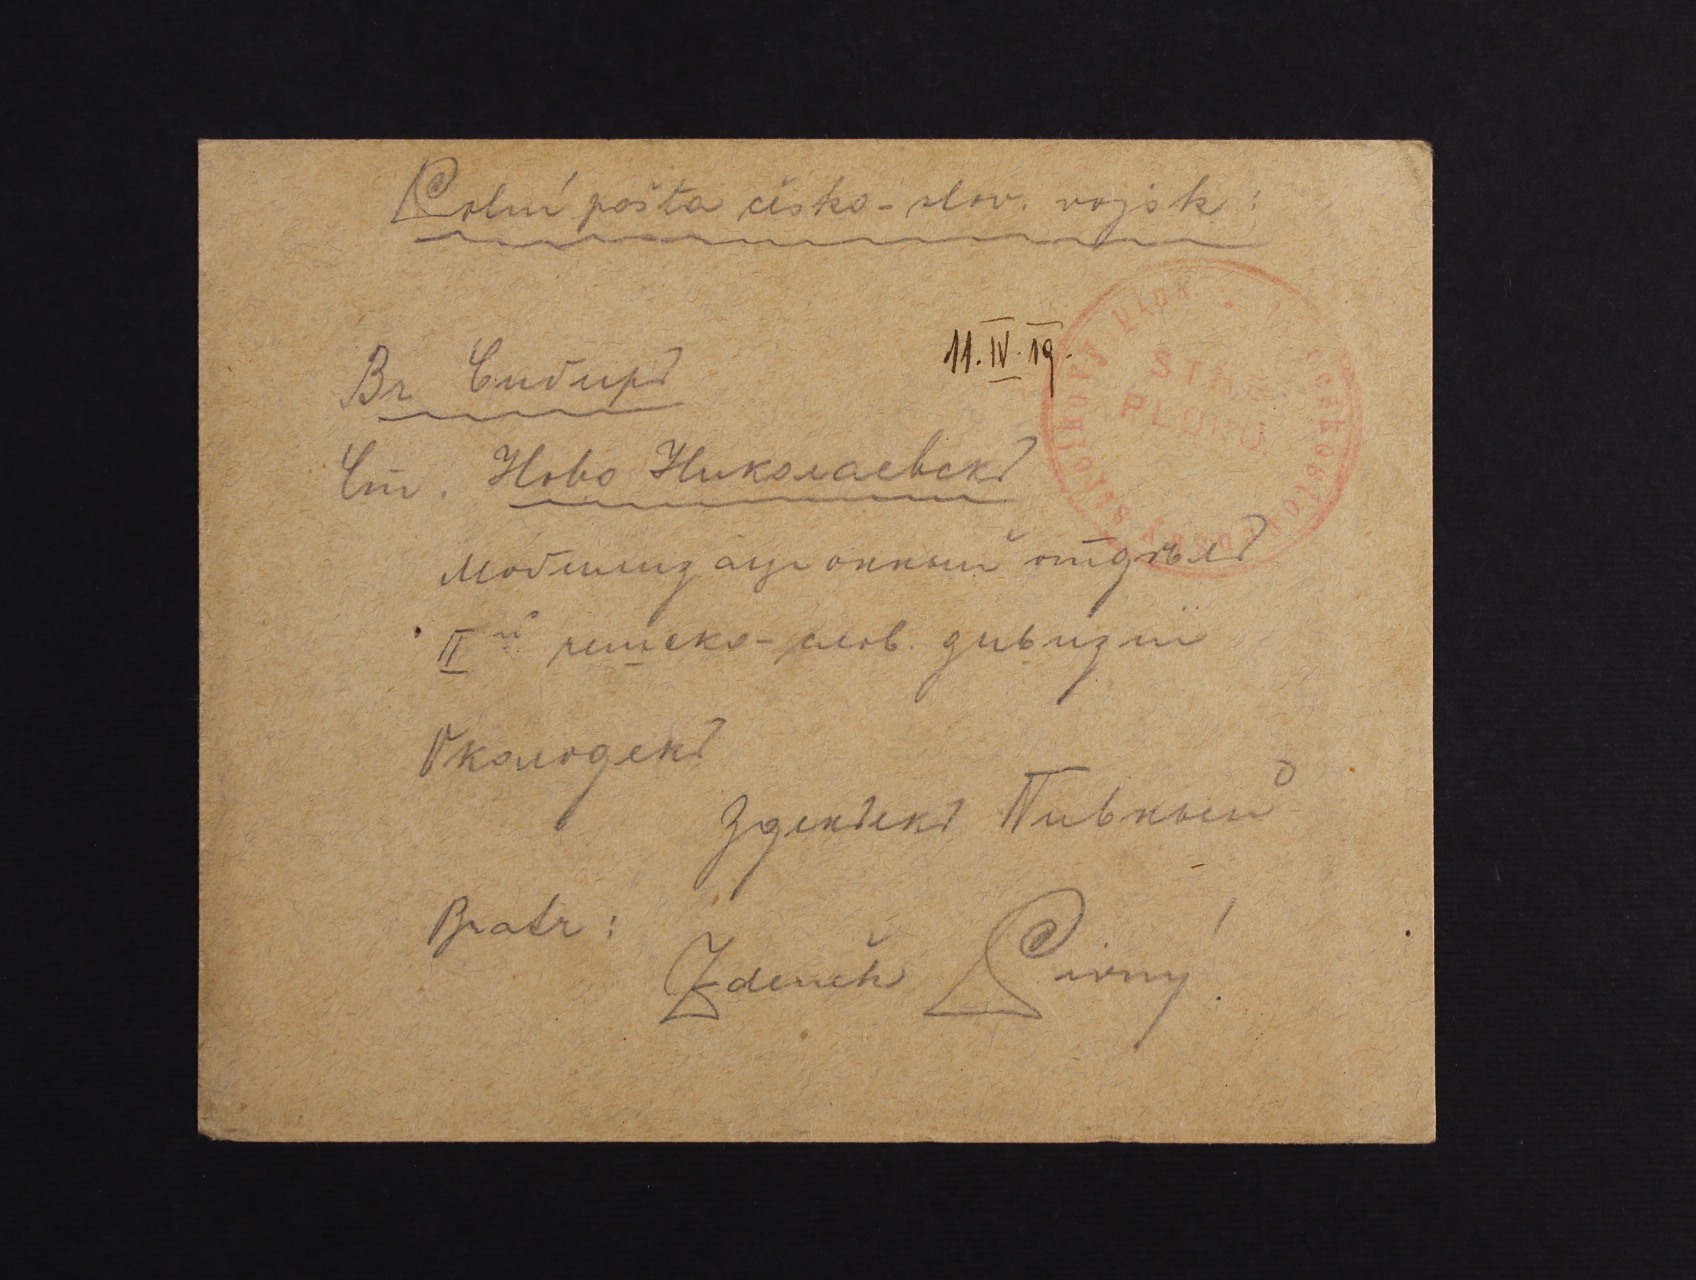 Polní pošta česko-slov. vojsk:
11.IV.19.
Въ Сибирь
Ст. Ново Николаевскъ
мобилизационный отдѣлъ
II й чешско-слов. дивизіи
Околодекъ
Зденѣкъ Пивный
Bratr:
Zdeněk Pivný
střelkový pluk
ŠTÁB
PLUKU